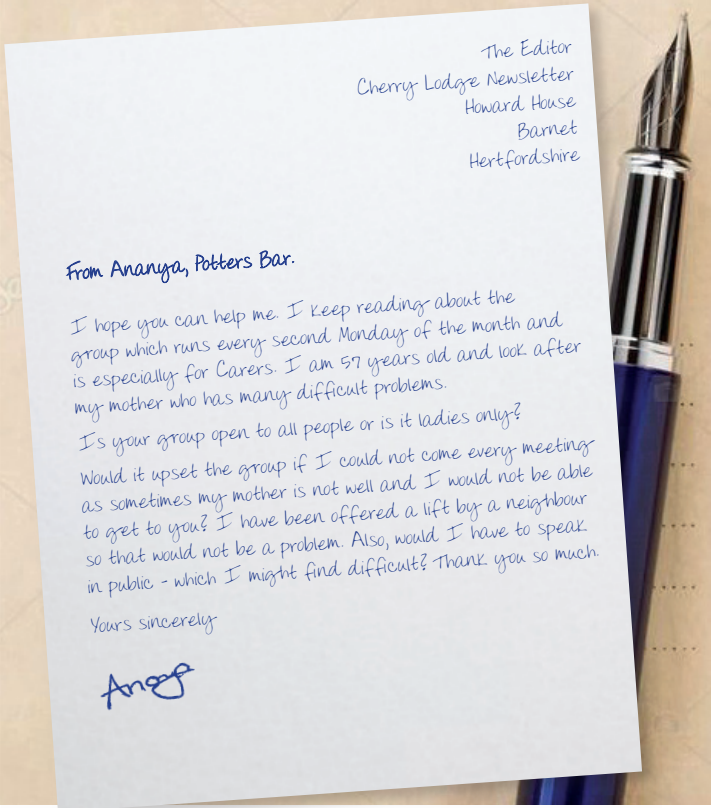 The Editor
Cherry Lodge Newsletter
Howard House
Barnet
Hertfordshire
From Ananya, Potters Bar.
I hope you can help me. I keep reading about the
group which runs every second Monday of the month and
is especially for Carers. I am 57 years old and look after
my mother who has many difficult problems.
Is your group open to all people or is it ladies only?
Would it upset the group if I could not come every meeting
as sometimes my mother is not well and I would not be able
to get to you? I have been offered a lift by a neighbour
so that would not be a problem. Also, would I have to speak
in public - which I might find difficult? Thank you so much.
Yours sincerely